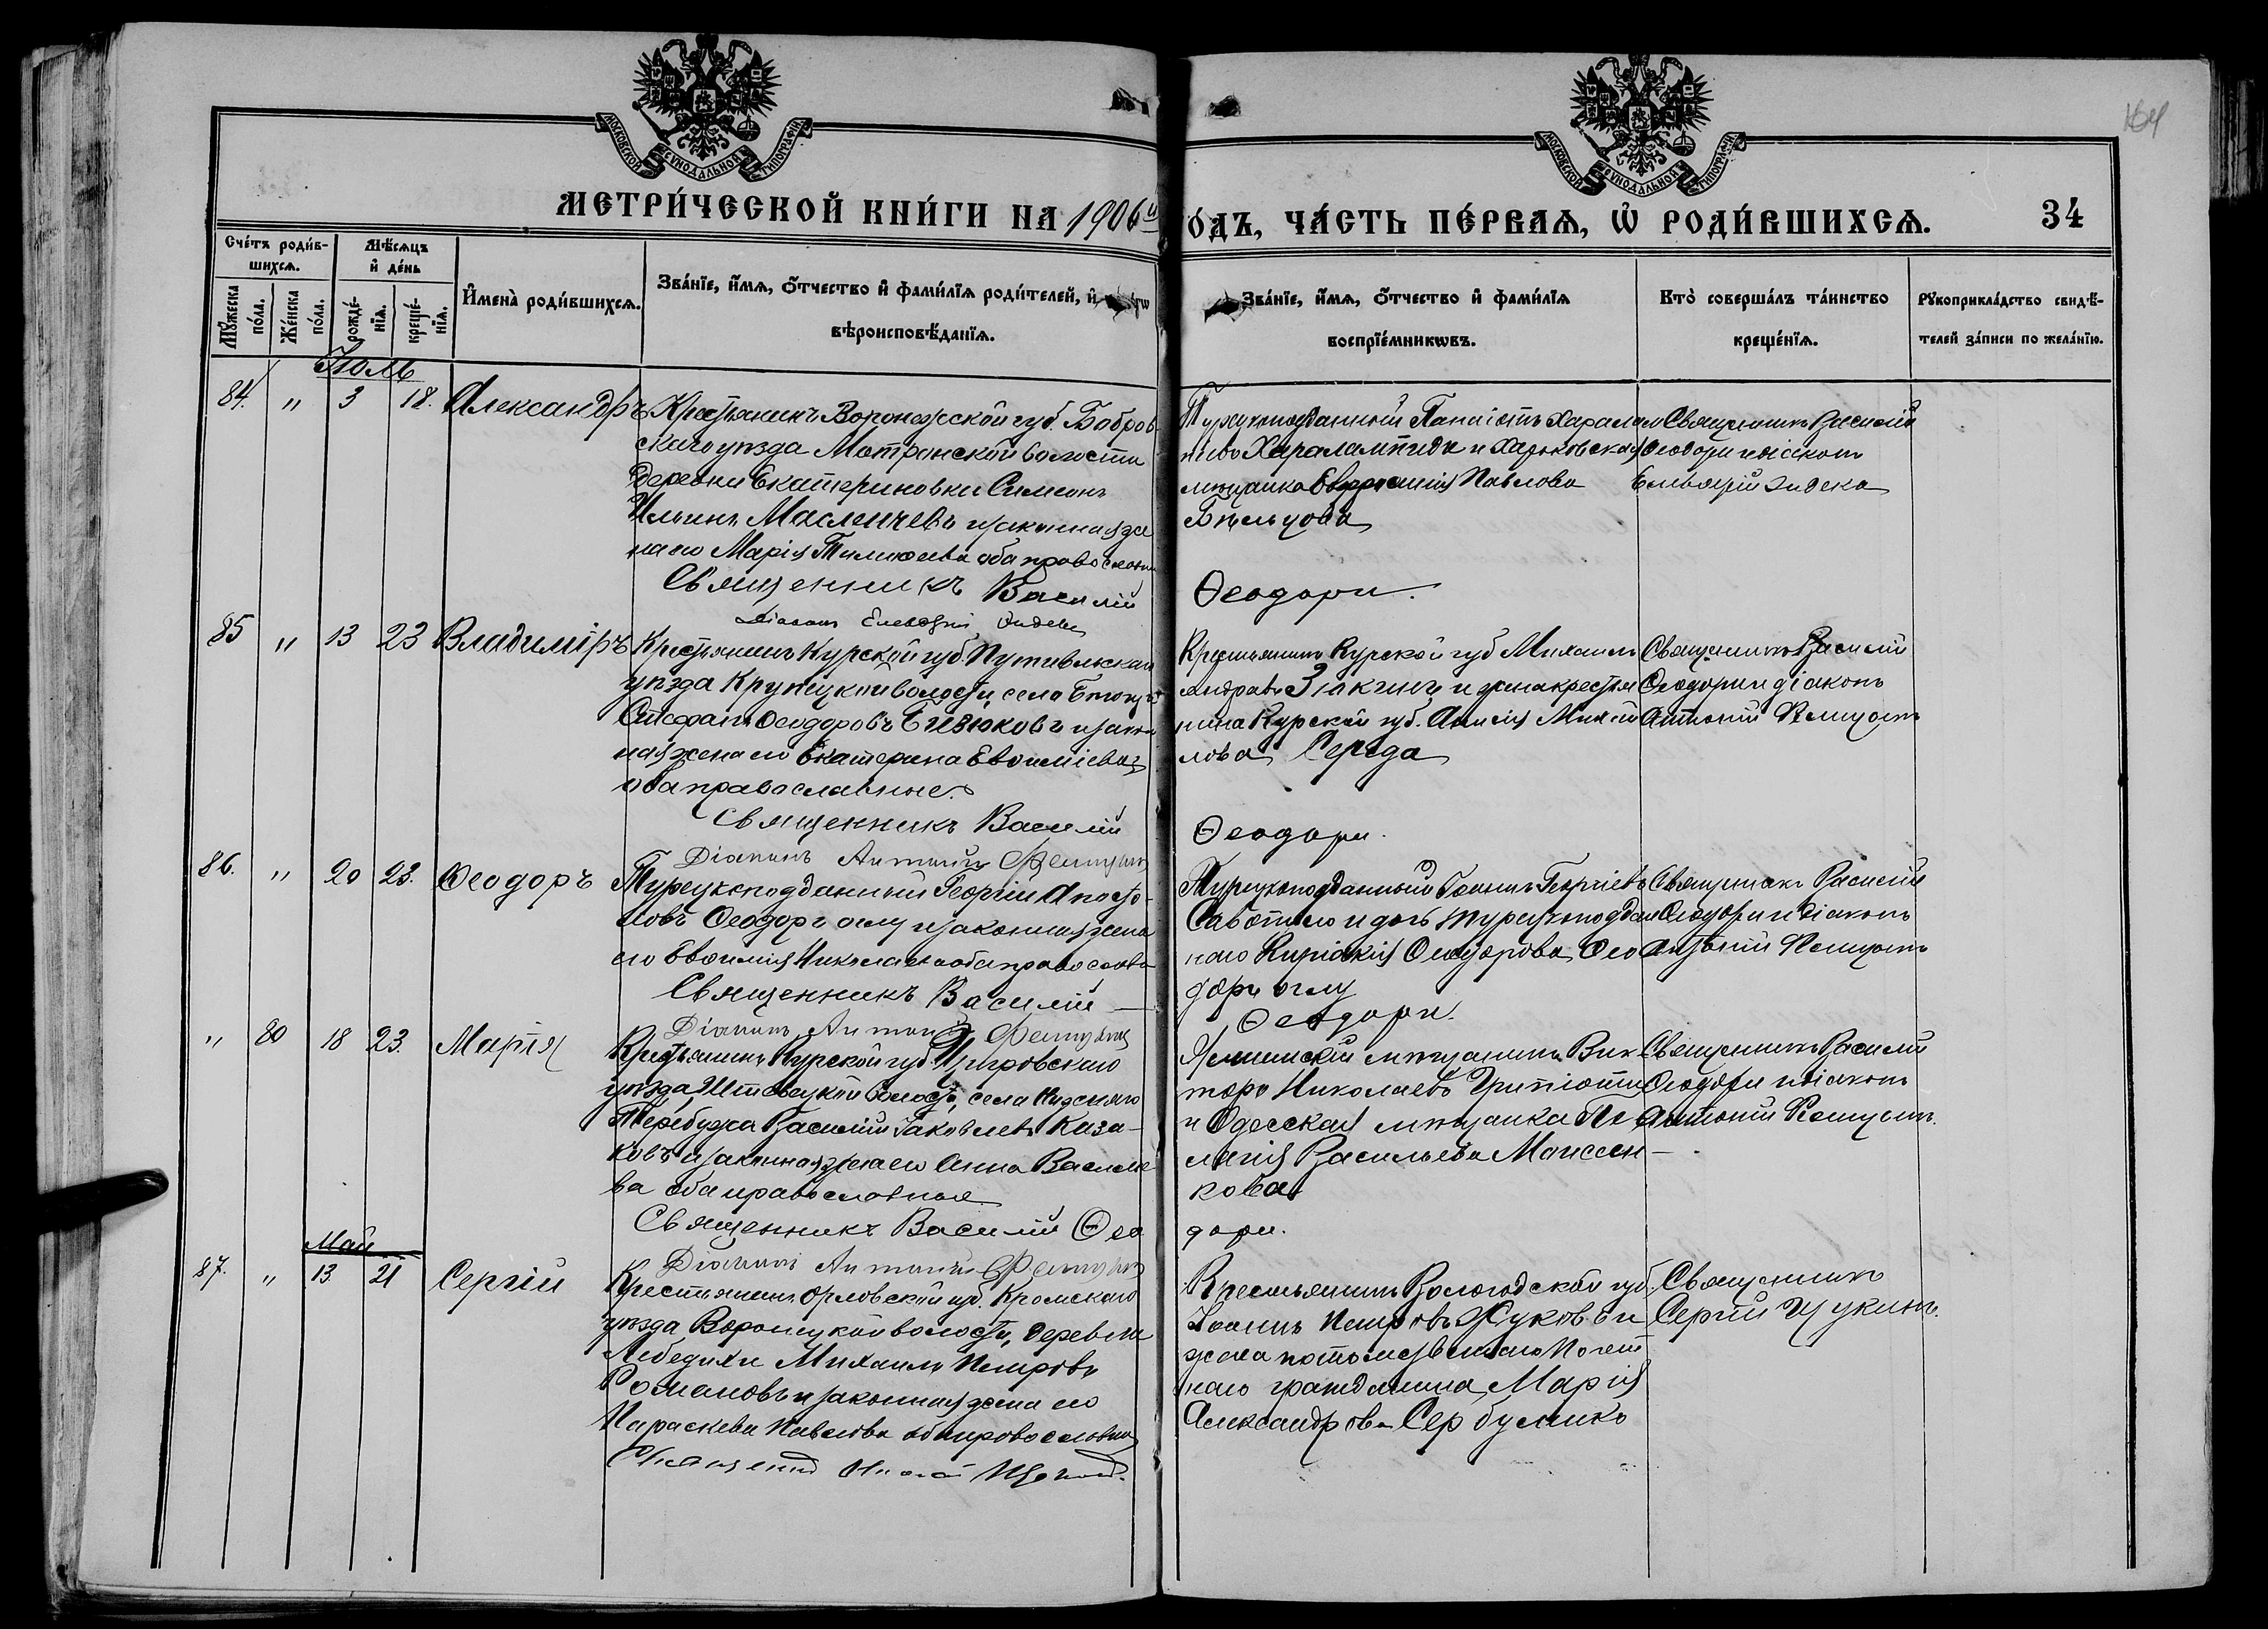 МОСКОВСКОЙ СУНОДАЛЬНОЙ ТИПОГРАФИИ
МОСКОВСКОЙ СУНОДАЛЬНОЙ ТИПОГРАФИИ
164
МЕТРИ́ЧЕСКОЙ КНИ́ГИ НА 1906й
О́ДЪ, ЧА́СТЬ ПЕ́РВАѦ, Ѡ҆ РОДИ́ВШИХСѦ.
34
Сче́тъ роди́в-
шихсѧ.
Мꙋ́жеска
по́ла.
Же́нска
по́ла.
Мѣ́сѧцъ
и҆ де́нь
рожде́-
нїѧ.
креще́-
нїѧ.
И҆мена̀ роди́вшихсѧ.
Зва́нїе, и҆́мѧ, ѻ҆́тчество и҆ фами́лїѧ роди́телей, и҆
вѣроисповѣ́данїѧ.
Зва́нїе, и҆́мѧ, ѻ҆́тчество и҆ фами́лїѧ
воспрїе́мникѡвъ.
Кто̀ соверша́лъ та́инство
креще́нїѧ.
Рꙋкоприкла́дство свидѣ́-
телей за́писи по жела́нїю.
Іюль
84. " 3 18. Александръ
Крестьянинъ Воронежской губ. Бобров
скаго уѣзда Мотронской волости
деревни Екатериновки Симеонъ
Ильинъ Масленчевъ и законная же
на его Марія Тимоѳеева оба православн
Священникъ Василій
Діаконъ Елевѳерій
Турецкоподданный Панаіотъ Харалам
піевъ Харалампиди и Харьковская
мѣщанка Евфросинія Павлова
Бѣльцова
Ѳеодори.
Священникъ Василій
Ѳеодори и діаконъ
85 " 13 23 Владиміръ
Крестьянинъ Курской губ. Путивльскаго
уѣзда Крупецкой волости, села
Стефанъ Ѳеодоровъ и закон
ная жена его Екатерина Евѳиміева
оба православные.
Священникъ Василій
Діаконъ Антоній
Крестьянинъ Курской губ Михаилъ
и жена крестья
нина Курской губ. Анисія Михай
лова Середа
Ѳеодори.
Священникъ Василій
Ѳеодори и діаконъ
Антоній
86. " 20 23. Ѳеодоръ
Турецкоподданный Георгій Апосто-
ловъ Ѳеодоръ оглу и законная жена
его Евѳимія Николаева оба правосла
Священникъ Василій
Діаконъ Антоній
Турецкоподданный Іоаннъ Георгіевъ
и дочь турецкоподдан
наго Киріакія Ѳеодорова Ѳео
доръ оглу
Ѳеодори.
Священникъ Василій
Ѳеодори и діаконъ
Антоній
" 80 18 23. Марія
Крестьянинъ Курской губ. Щигровскаго
уѣзда волости, села Нидскаго
Теребужа Василій Іаковлевъ Каза-
ковъ и законная жена его Анна Василье
ва оба православные
Священникъ Василій Ѳео
Діаконъ Антоній
мѣщанинъ Вик
торъ Николаевъ
и Одесская мѣщанка Пе
лагія Васильева Моисеен-
кова
дори.
Священникъ Василій
Ѳеодори и діаконъ
Антоній
Май
87. " 13. 21 Сергій
Крестьянинъ Орловской губ. Кромскаго
уѣзда Воронецкой волости, деревни
Лебедихи Михаилъ Петровъ
Романовъ и законная жена его
Параскева Павлова оба православн
Крестьянинъ Вологодской губ.
Іоаннъ Петровъ Жуковъ и
жена потомственнаго Почет
наго гражданина, Марія
Александрова Сербулинко
Священникъ
Сергій Щукинъ.